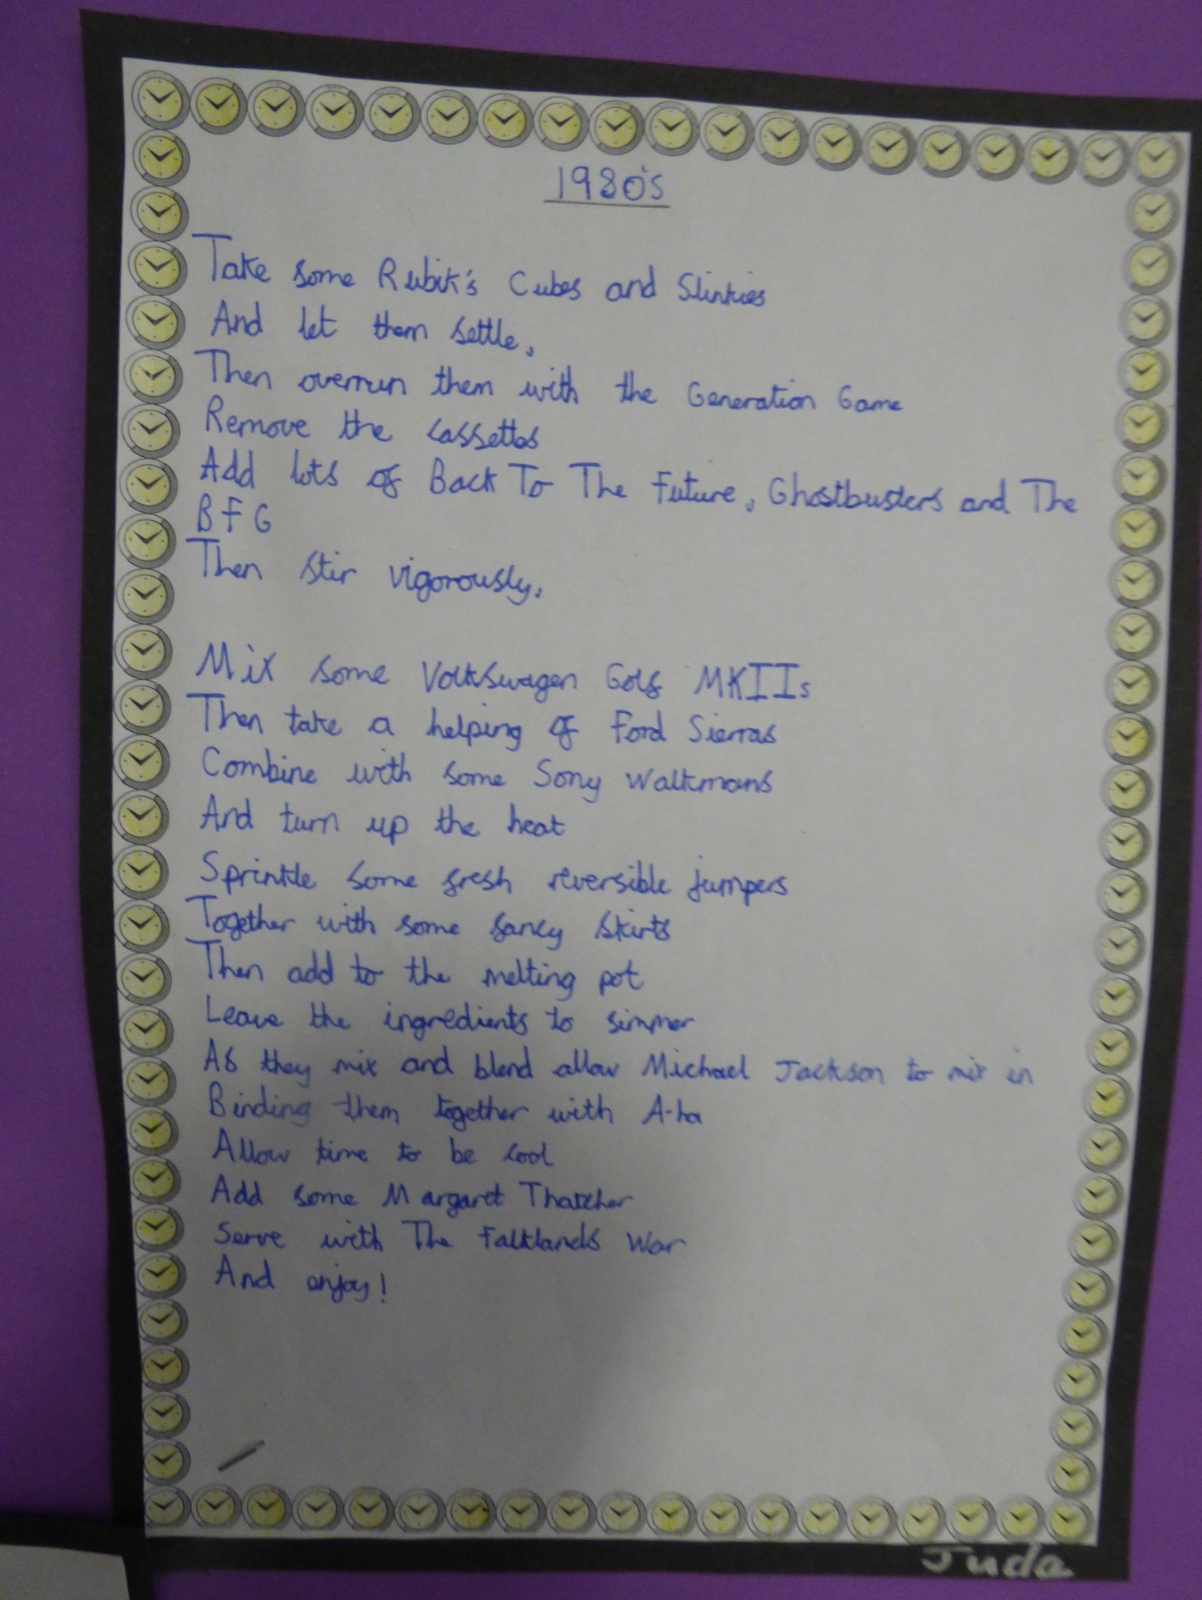 1980's
Take some Rubik's Cubes and Slinkies
And let them settle,
Then overrun them with the Generation Game
Remove the cassettes
Add lots of Back To The Future, Ghostbusters and The
BFG
Then stir vigorously,
Mix some Volkswagen Golf MKIIs
Then take a helping of Ford Sierras
Combine with some Sony Walkmans
And turn up the heat
Sprinkle some fresh reversible jumpers
Together with some fancy skirts
Then add to the melting pot
Leave the ingredients to simmer
As they mix and blend allow Michael Jackson to mix in
Binding them together with A-ha
Allow time to be cool
Add some Margaret Thatcher
Serve with The Falklands War
And enjoy!
Juda